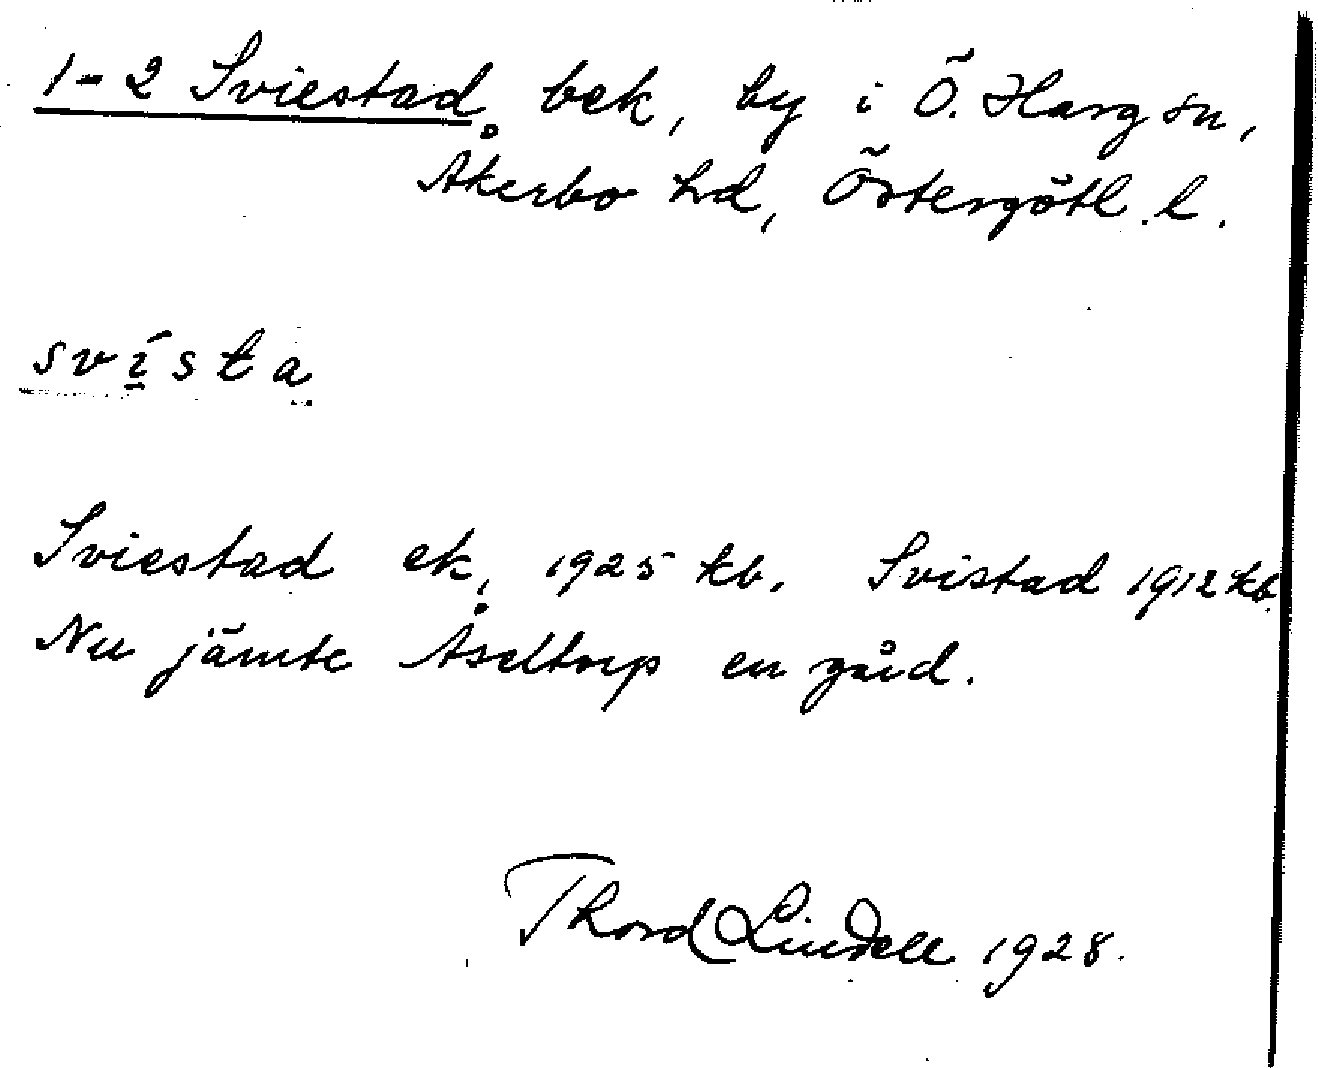 1-2 Sviestad, bek, by i Ö. Harg sn,
Åkerbo hd, Östergötl. l.
svísta
Sviestad ek, 1925 kb. Svistad 1912 kb.
Nu jämte Åseltorp en gård.
Thord Lindell 1928.